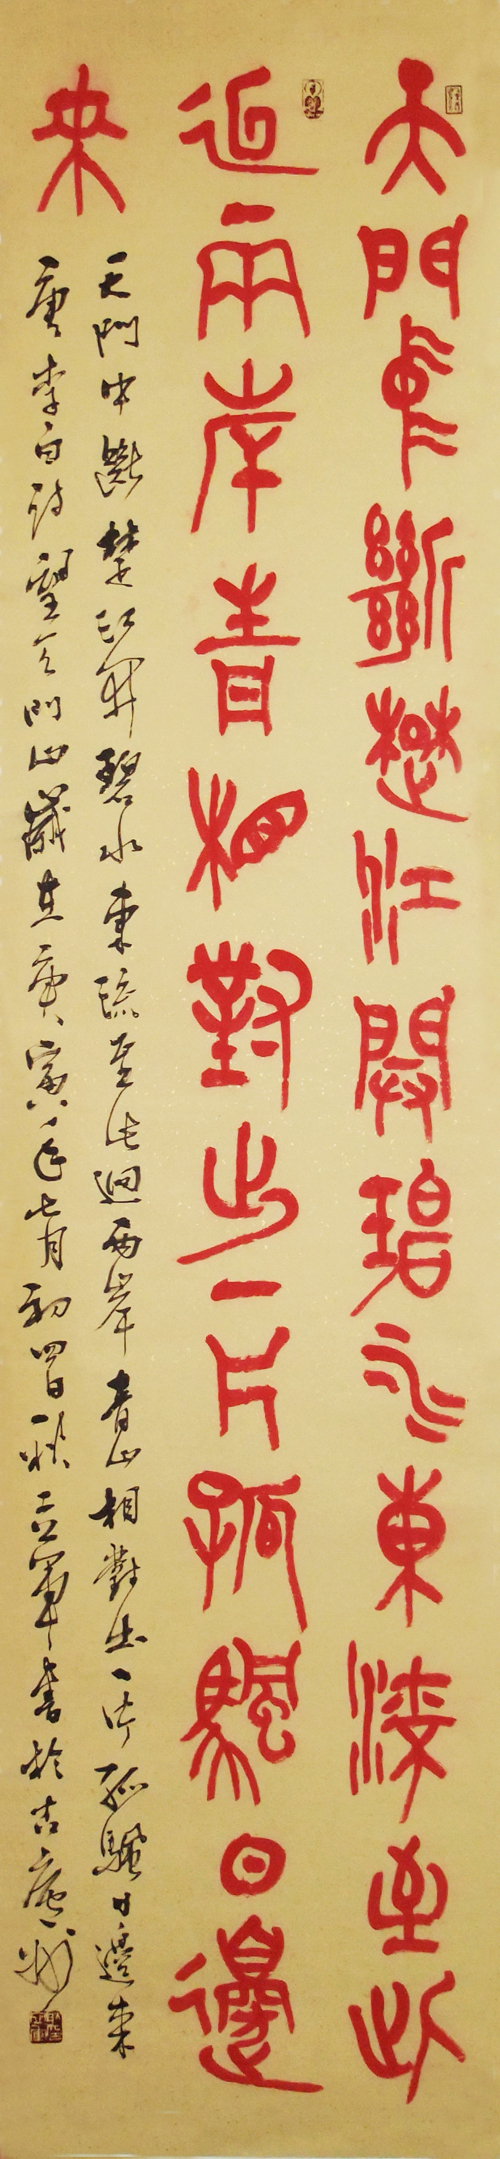 天門中斷楚江開碧水東流至此
迴兩岸青相對出一片孤颿日邊
来
天門中斷楚江開碧水東流至此迴兩岸青山相對出一片孤颿日邊来
唐李白詩望天門山歲在庚寅年七月初四日秋立軍書於古廬州